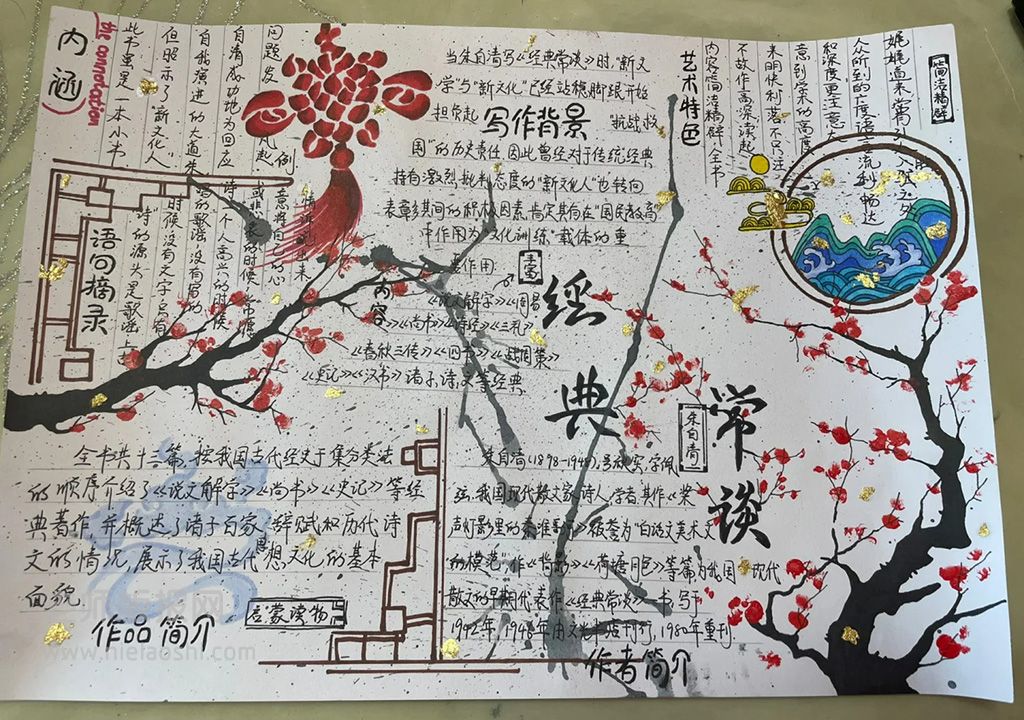 内涵
the connotation
此书虽是一本小书
但昭示了"新文化人"
自我演进的大道
自清成功地为回应
问题发凡起例
语句摘录
诗的源头是歌谣上古
时候没有文字只有
当朱自清写《经典常谈》时,"新文
学"与"新文化"已经站稳脚跟开始
担负起
"抗战救
写作背景
国"的历史责任,因此曾经对于传统经典
持有激烈批判态度的"新文化人"也转向
表彰其间的积极因素,肯定其有在"国民教育"
中作用为"文化训练"载体的重
要作用
艺术特色
内容简洁精辟,全书
不故作高深读起
来明快利落不只注
意到学术的高度
和深度更注意大
人众所到的上度语言流利畅达
娓娓道来常
简洁精辟
丰富
内容
《说文解字》《周易
》《尚书》《诗经》《三礼》
《春秋三传》《四书》《战国策》
《史记》《汉书》诸子,诗,文等经典
经典常谈
朱自清
全书共十三篇,按我国古代经史子集分类法
的顺序介绍了《说文解字》《尚书》《史记》等经
典著作,并概述了诸子百家,辞赋和历代诗
文的情况,展示了我国古代思想,文化的基本
面貌
作品简介
启蒙读物
朱自清(1898-1948),号秋实,字佩
弦,我国现代散文家,诗人,学者,其作《桨
声灯影里的秦淮河》被誉为"白话文美术文
的模范",作《背影》《荷塘月色》等篇为我国现代
散文的早期代表作《经典常谈》一书,写于
1942年,1946年由文光书店刊行,1980年重刊
作者简介
www.hietaoshi.com